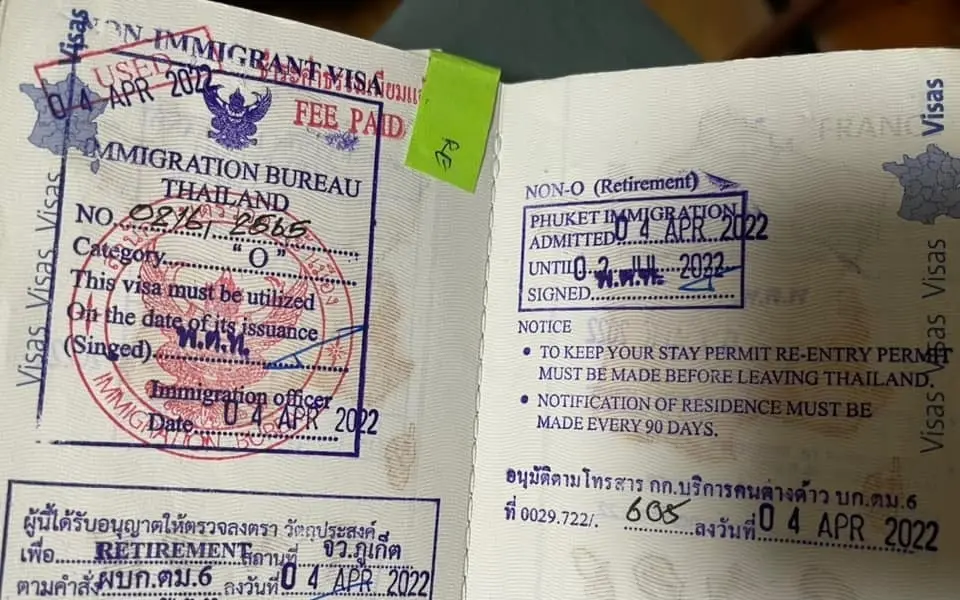 Visas
NON IMMIGRANT VISA
USED
04 APR 2022
FEE PAID
IMMIGRATION BUREAU
THAILAND
NO. 0216/2565
Category "O"
This visa must be utilized
On the date of its issuance
(Singed)
Immigration officer
Date 04 APR 2022
IMMIGRATION
Visas Visas Visas
ผู้นี้ได้รับอนุญาตให้ตรวจลงตรา วัตถุประสงค์
เพื่อ RETIREMENT สถานที่ จว.ภูเก็ต
ตามคำสั่ง ผบก.ตม.6 ลงวันที่ 04 APR 2022
Visas
FRANC
NON-O (Retirement)
PHUKET IMMIGRATION
ADMITTED 04 APR 2022
UNTIL 2022
SIGNED
NOTICE
• TO KEEP YOUR STAY PERMIT RE-ENTRY PERMIT
MUST BE MADE BEFORE LEAVING THAILAND.
• NOTIFICATION OF RESIDENCE MUST BE
MADE EVERY 90 DAYS.
อนุมัติตามโทรสาร กก.บริการคนต่างด้าว บก.ตม.6
ที่ 0029.722/. 605 ลงวันที่ 04 APR 2022
Visas Visas Visas